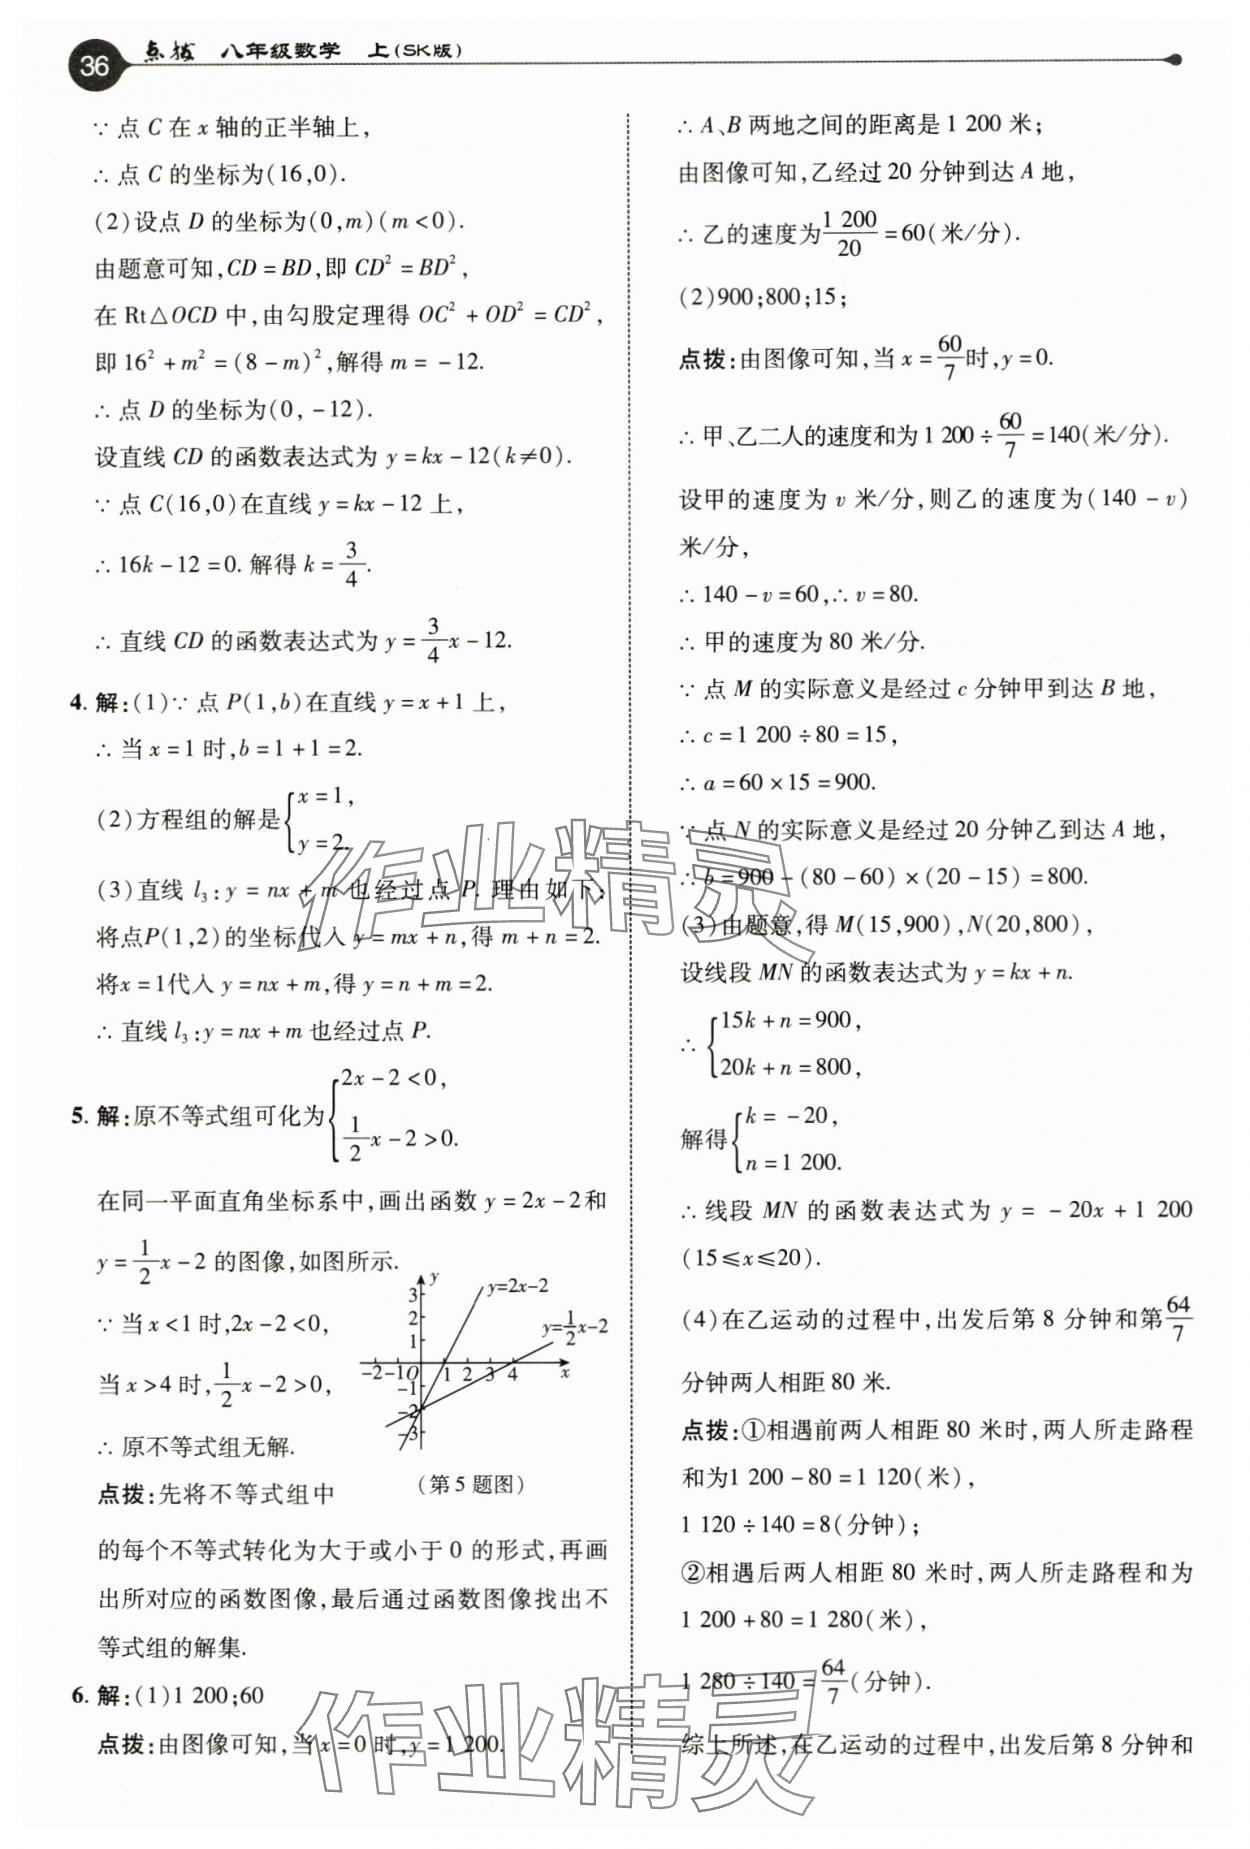 36 点拨 八年级数学 上(SK版)
∵ 点 C 在 x 轴的正半轴上,
∴ 点 C 的坐标为(16,0).
(2)设点 D 的坐标为(0,m)(m<0).
由题意可知,CD=BD,即 CD²=BD²,
在 Rt△OCD 中,由勾股定理得 OC²+OD²=CD²,
即 16²+m²=(8-m)²,解得 m=-12.
∴ 点 D 的坐标为(0,-12).
设直线 CD 的函数表达式为 y=kx-12(k≠0).
∵ 点 C(16,0)在直线 y=kx-12 上,
∴ 16k-12=0. 解得 k=3/4.
∴ 直线 CD 的函数表达式为 y=3/4x-12.
4. 解:(1)∵ 点 P(1,b)在直线 y=x+1 上,
∴ 当 x=1 时,b=1+1=2.
(2)方程组的解是{x=1,
y=2.
(3)直线 l₃:y=nx+m 也经过点 P. 理由如下:
将点P(1,2)的坐标代入 y=mx+n,得 m+n=2.
将x=1代入 y=nx+m,得 y=n+m=2.
∴ 直线 l₃:y=nx+m 也经过点 P.
5. 解:原不等式组可化为{2x-2<0,
1/2x-2>0.
在同一平面直角坐标系中,画出函数 y=2x-2和
y=1/2x-2 的图像,如图所示.
∵ 当 x<1 时,2x-2<0,
当 x>4 时,1/2x-2>0,
∴ 原不等式组无解.
点拨:先将不等式组中
y
3
2
1
-2-1O 1 2 3 4 x
-1
-2
-3
y=2x-2
y=1/2x-2
(第5题图)
的每个不等式转化为大于或小于 0 的形式,再画
出所对应的函数图像,最后通过函数图像找出不
等式组的解集.
6. 解:(1)1 200;60
点拨:由图像可知,当 x=0 时,y=1 200.
∴ A、B 两地之间的距离是 1 200 米;
由图像可知,乙经过 20 分钟到达 A 地,
∴ 乙的速度为1 200/20=60(米/分).
(2)900;800;15;
点拨:由图像可知,当 x=60/7时,y=0.
∴ 甲、乙二人的速度和为 1 200÷60/7=140(米/分).
设甲的速度为 v 米/分,则乙的速度为(140-v)
米/分,
∴ 140-v=60,∴ v=80.
∴ 甲的速度为 80 米/分.
∵ 点 M 的实际意义是经过 c 分钟甲到达 B 地,
∴ c=1 200÷80=15,
∴ a=60×15=900.
∵ 点 N 的实际意义是经过 20 分钟乙到达 A 地,
∴ b=900-(80-60)×(20-15)=800.
(3)由题意,得 M(15,900),N(20,800),
设线段 MN 的函数表达式为 y=kx+n.
∴ {15k+n=900,
20k+n=800,
解得{k=-20,
n=1 200.
∴ 线段 MN 的函数表达式为 y=-20x+1 200
(15≤x≤20).
(4)在乙运动的过程中,出发后第 8 分钟和第64/7
分钟两人相距 80 米.
点拨:①相遇前两人相距 80 米时,两人所走路程
和为1 200-80=1 120(米),
1 120÷140=8(分钟);
②相遇后两人相距 80 米时,两人所走路程和为
1 200+80=1 280(米),
1 280÷140=64/7(分钟).
综上所述,在乙运动的过程中,出发后第 8 分钟和
作业精灵
作业精灵